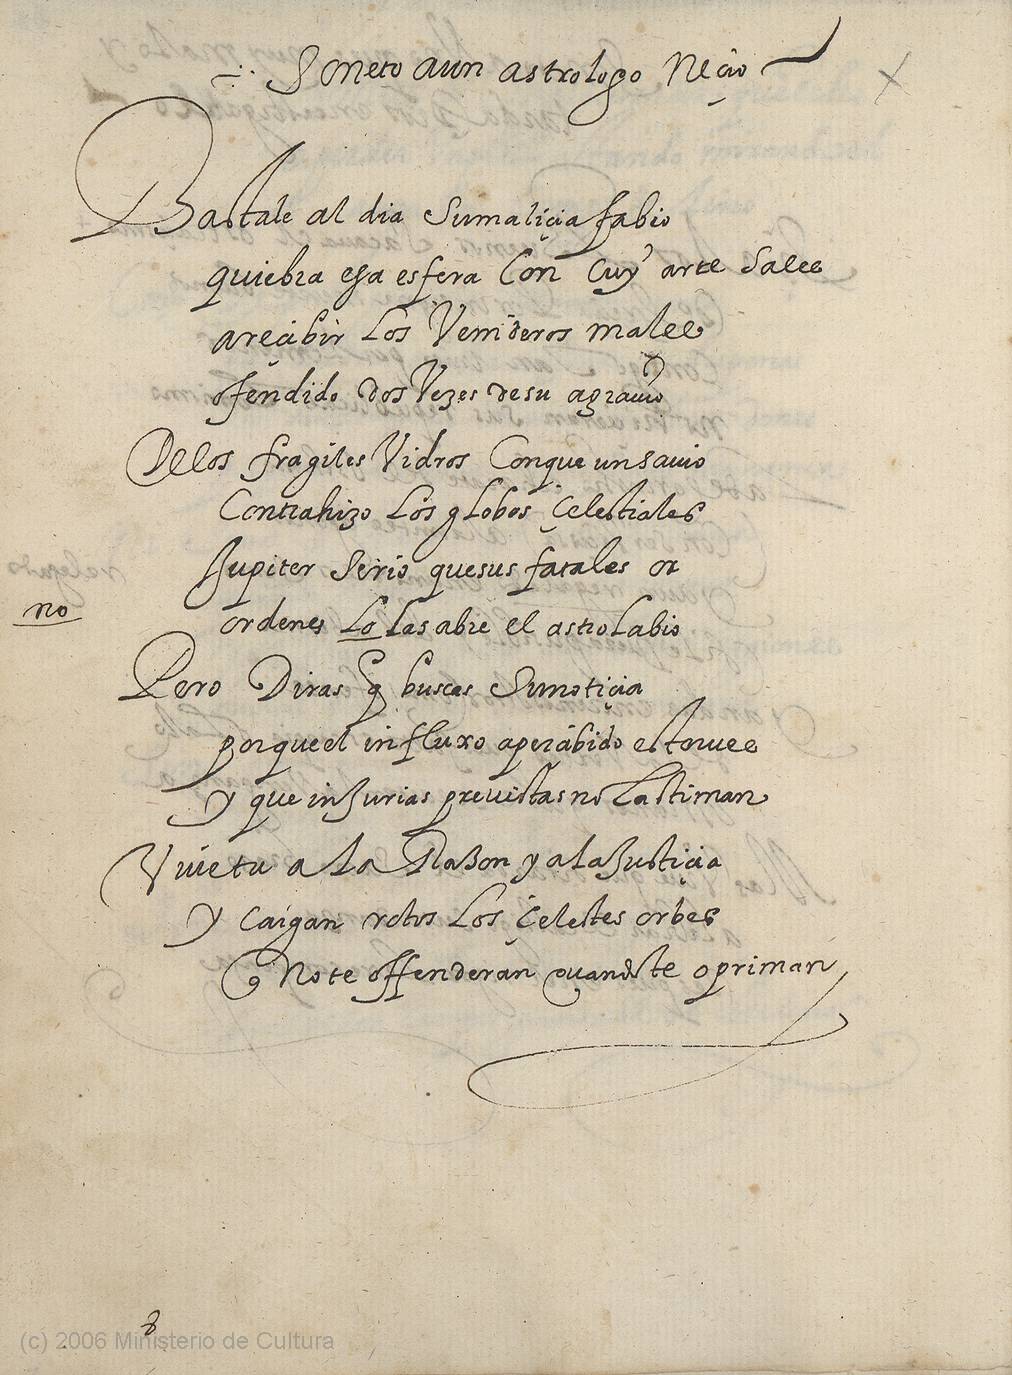 Soneto a un astrologo Neçio
Bastale al dia su maliçia fabio
quiebra esa esfera Con cuy' arte sales
a reçibir Los Venideros males
ofendido dos Vezes de su agrauio
De los fragiles Vidros Con que un sauio
Contrahizo Los globos Çelestiales
Jupiter se rio que sus fatales or
no
ordenes Lo las abre el astrolabio
Pero Diras q buscas su notiçia
porque el influxo aperçibido estorues
y que injurias preuistas no Lastiman
Viue tu a La Razon y a la Justiçia
y Caigan rotos Los Çelestes orbes
q No te offenderan quando te opriman
(c) 2006 Ministerio de Cultura